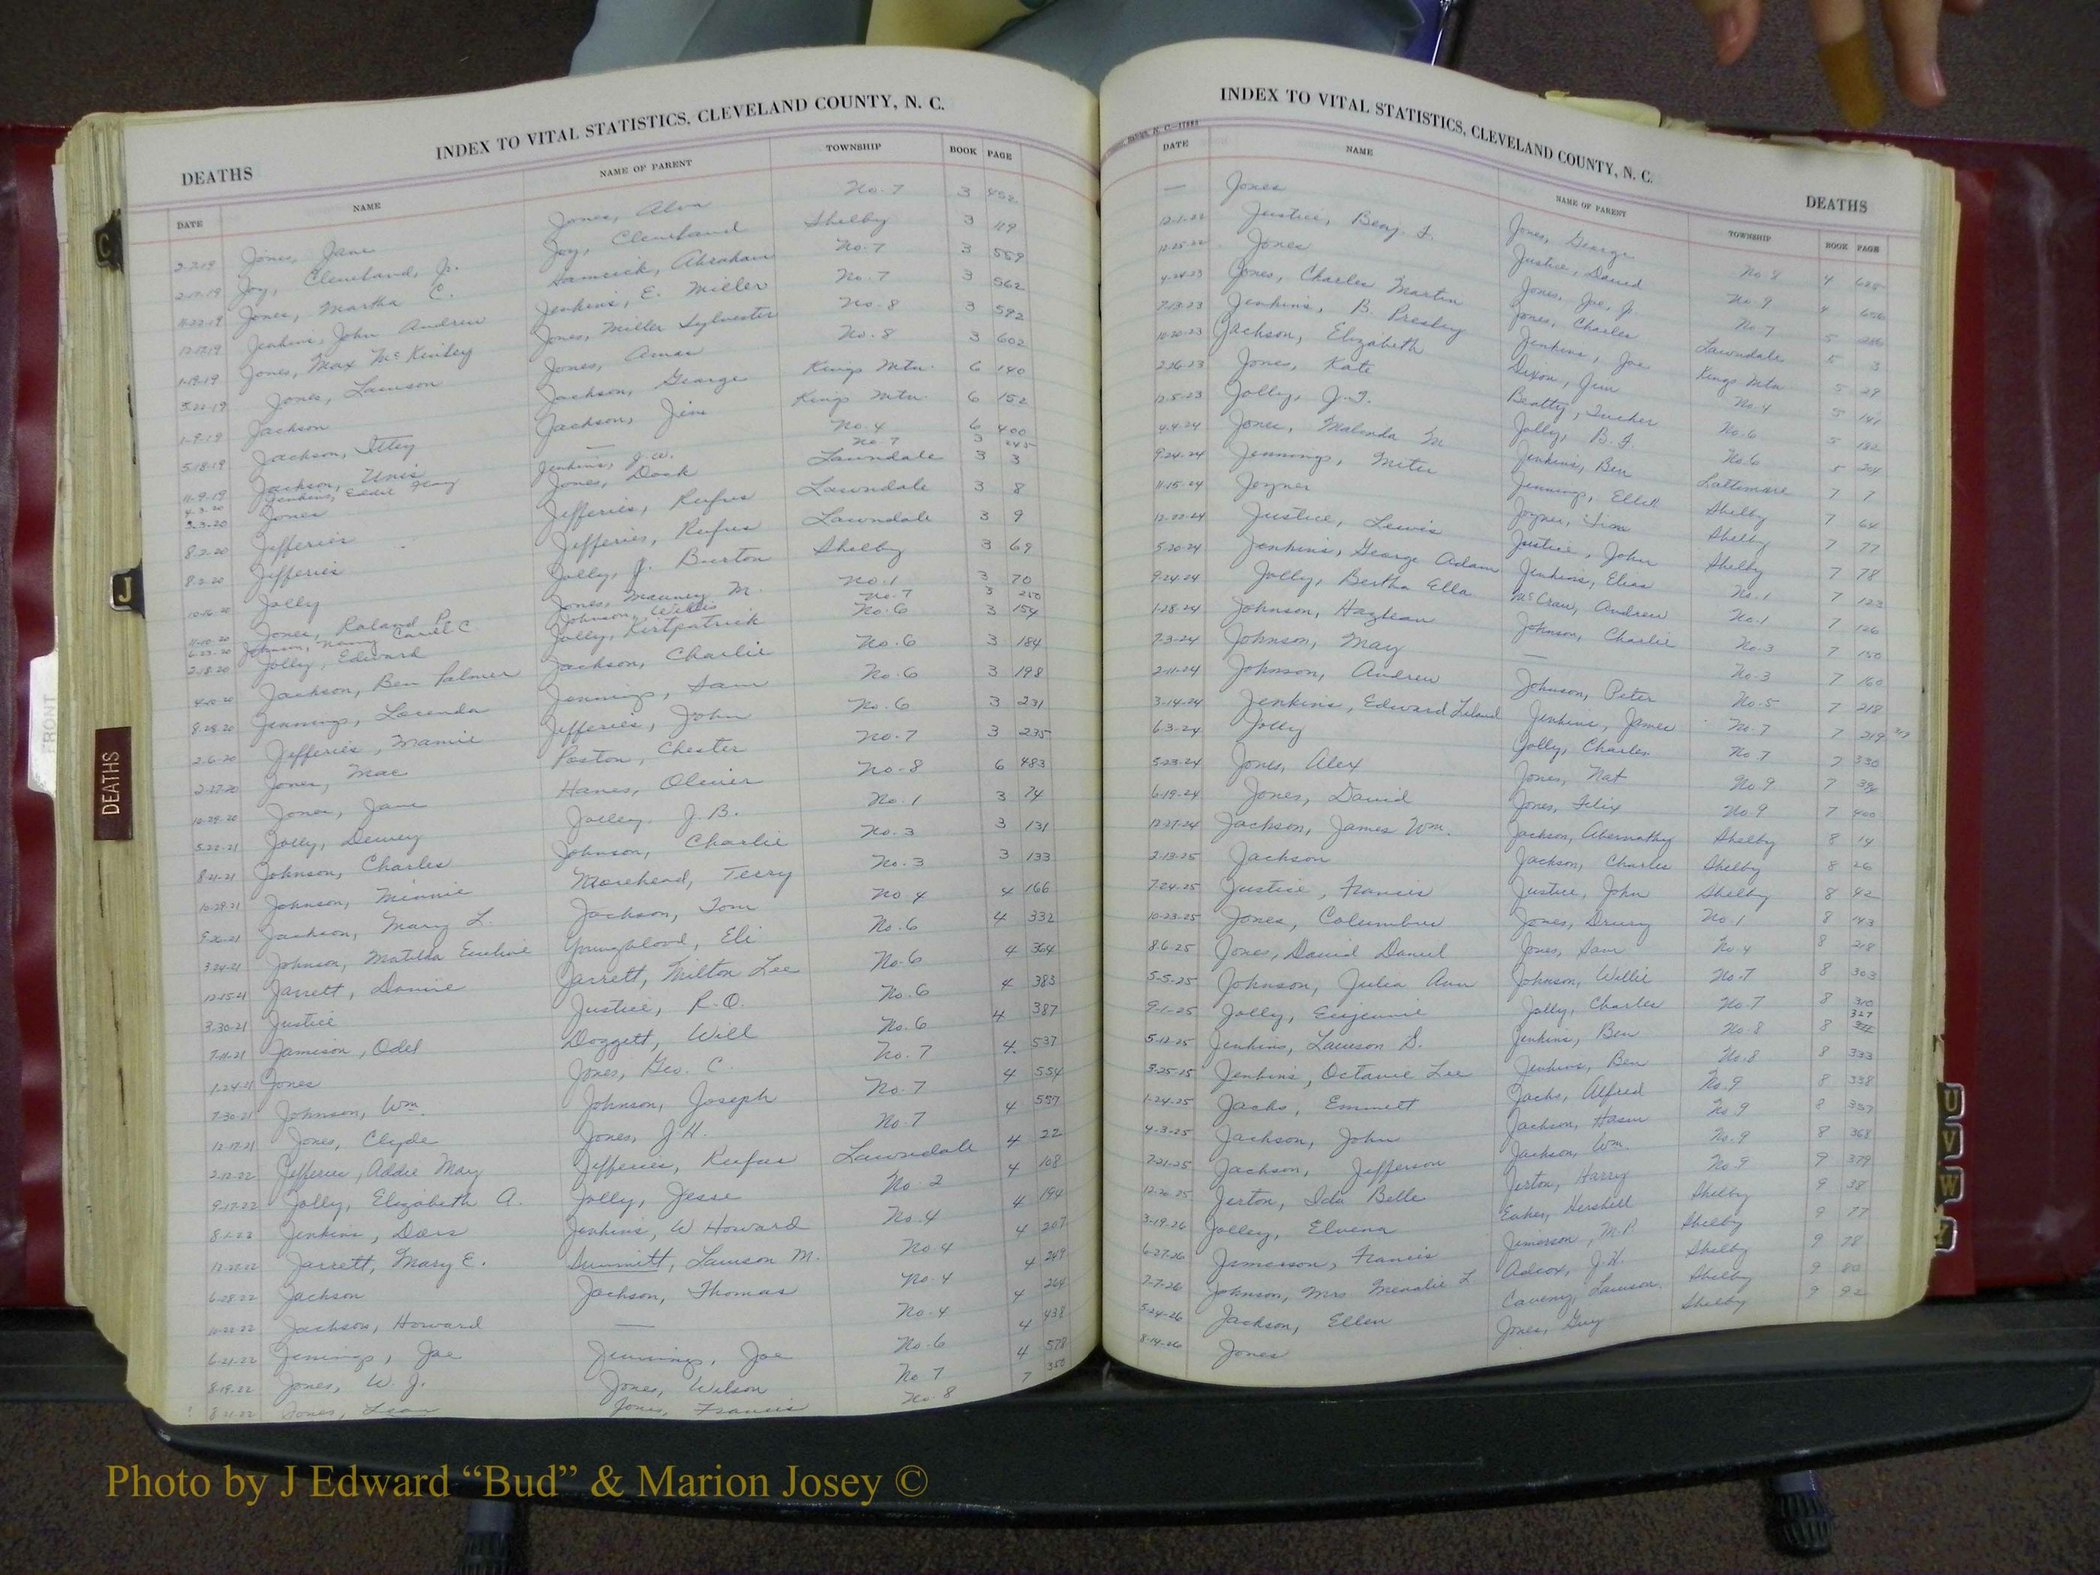 INDEX TO VITAL STATISTICS, CLEVELAND COUNTY, N. C.
DEATHS
DATE NAME NAME OF PARENT TOWNSHIP BOOK PAGE
2-7-19 Jones, Jane Jones, Alva No. 7 3 452
2-17-19 Joy, Cleveland, Jr. Joy, Cleveland Shelby 3 119
11-22-19 Jones, Martha C. Hamrick, Abraham No. 7 3 559
12-17-19 Jenkins, John Andrew Jenkins, E. Miller No. 7 3 562
1-19-19 Jones, Max McKinley Jones, Miller Sylvester No. 8 3 592
5-22-19 Jones, Lawson Jones, Amos No. 8 3 602
1-9-19 Jackson Jackson, George Kings Mtn. 6 140
5-18-19 Jackson, Jackson, Jim Kings Mtn. 6 152
11-9-19 Jackson, Unis — No. 4 6 400
4-3-20 Jenkins, Eddie Jenkins, J. W. No. 7 3 245
3-3-20 Jones Jones, Dock Lawndale 3 3
8-2-20 Jefferies Jefferies, Rufus Lawndale 3 8
8-2-20 Jefferies Jefferies, Rufus Lawndale 3 9
10-16-20 Jolly Jolly, J. Burton Shelby 3 69
11-10-20 Jones, Roland P. Jones, Mauney M. No. 1 3 70
6-23-20 Johnson, Nancy Carol C Johnson, Willis No. 7 3 250
2-18-20 Jolly, Edward Jolly, Kirtpatrick No. 6 3 154
4-10-20 Jackson, Ben Palmer Jackson, Charlie No. 6 3 184
8-28-20 Jennings, Lorenda Jennings, Sam No. 6 3 198
2-6-20 Jefferies, Mamie Jefferies, John No. 6 3 231
2-27-20 Jones, Mae Poston, Chester No. 7 3 235
10-29-20 Jones, Jane Hanes, Olivier No. 8 6 483
5-22-21 Jolly, Dewey Jolley, J. B. No. 1 3 74
8-21-21 Johnson, Charles Johnson, Charlie No. 3 3 131
10-29-21 Johnson, Minnie Morehead, Terry No. 3 3 133
9-26-21 Jackson, Mary L. Jackson, Tom No. 4 4 166
3-24-21 Johnson, Matilda Youngblood, Eli No. 6 4 332
12-15-21 Jarrett, Jarrett, Milton Lee No. 6 4 364
3-30-21 Justice Justice, R. O. No. 6 4 383
7-11-21 Jamison, Odel Doggett, Will No. 6 4 387
1-24-21 Jones Jones, Geo. C. No. 7 4 537
7-30-21 Johnson, Wm. Johnson, Joseph No. 7 4 554
12-17-21 Jones, Clyde Jones, J. H. No. 7 4 557
2-12-22 Jefferies, Addie May Jefferies, Rufus Lawndale 4 22
9-17-22 Jolly, Elizabeth A. Jolly, Jesse No. 2 4 108
8-1-22 Jenkins, Jenkins, W Howard No. 4 4 194
12-27-22 Jarrett, Mary E. Summitt, Lawson M. No. 4 4 207
6-28-22 Jackson Jackson, Thomas No. 4 4 249
10-22-22 Jackson, Howard — No. 4 4 264
6-21-22 Jennings, Joe Jennings, Joe No. 6 4 438
8-19-22 Jones, W. J. Jones, Wilson No. 7 4 578
8-21-22 Jones, Jones, Francis No. 8 7 350
INDEX TO VITAL STATISTICS, CLEVELAND COUNTY, N. C.
DEATHS
DATE NAME NAME OF PARENT TOWNSHIP BOOK PAGE
— Jones Jones, George No. 8 4 625
12-1-22 Justice, Benj. F. Justice, David No. 9 4 656
12-25-22 Jones Jones, Joe, Jr. No. 7 5 286
4-24-23 Jones, Charles Martin Jones, Charles Lawndale 5 3
7-13-23 Jenkins, B. Presley Jenkins, Joe Kings Mtn. 5 29
10-20-23 Jackson, Elizabeth Dixon, Jim No. 4 5 141
2-26-23 Jones, Kate Beatty, Tucker No. 6 5 182
12-5-23 Jolly, J. T. Jolly, B. F. No. 6 5 204
4-4-24 Jones, Malinda M Jenkins, Ben Lattimore 7 7
9-24-24 Jennings, Jennings, Shelby 7 64
11-15-24 Joyner Joyner, Jim Shelby 7 77
12-22-24 Justice, Lewis Justice, John Shelby 7 78
5-20-24 Jenkins, George Adam Jenkins, Elias No. 1 7 123
9-24-24 Jolly, Bertha Ella McCraw, Andrew No. 1 7 126
1-28-24 Johnson, Hazlean Johnson, Charlie No. 3 7 150
7-3-24 Johnson, May — No. 3 7 160
2-11-24 Johnson, Andrew Johnson, Peter No. 5 7 218
3-14-24 Jenkins, Edward Leland Jenkins, James No. 7 7 219
6-3-24 Jolly Jolly, Charles No. 7 7 330
5-23-24 Jones, Alex Jones, Nat No. 9 7
6-19-24 Jones, David Jones, Felix No. 9 7 400
12-27-24 Jackson, James Wm. Jackson, Abernathy Shelby 8 14
2-13-25 Jackson Jackson, Charles Shelby 8 26
7-24-25 Justice, Francis Justice, John Shelby 8 42
10-23-25 Jones, Columbus Jones, Drury No. 1 8 143
8-6-25 Jones, David Daniel Jones, Sam No. 4 8 218
5-5-25 Johnson, Julia Ann Johnson, Willie No. 7 8 303
9-1-25 Jolly, Jolly, Charles No. 7 8 310
5-12-25 Jenkins, Lawson S. Jenkins, Ben No. 8 8 327
3-25-25 Jenkins, Octavie Lee Jenkins, Ben No. 8 8 333
1-24-25 Jacks, Emmett Jacks, Alfred No. 9 8 338
4-3-25 Jackson, John Jackson, No. 9 8 357
7-21-25 Jackson, Jefferson Jackson, Wm. No. 9 8 368
12-26-25 Jerton, Ida Belle Jerton, Harry No. 9 9 379
3-19-26 Jolley, Elvena Eaker, Hershell Shelby 9 38
6-27-26 Jimerson, Francis Jimerson, M. P. Shelby 9 77
7-7-26 Johnson, Mrs L Adcox, J. H. Shelby 9 78
5-24-26 Jackson, Ellen Caveny, Lawson Shelby 9 80
8-14-26 Jones Jones, Guy Shelby 9 92
C
J
FRONT
DEATHS
U
V
W
Photo by J Edward “Bud” & Marion Josey ©